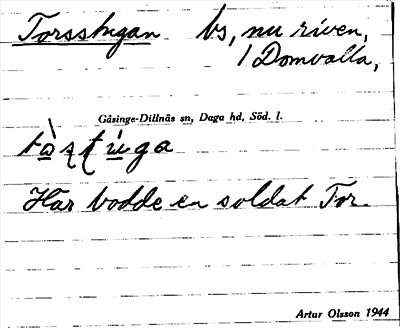 Torsstugan bs, nu riven,
/ Domvalla,
Gåsinge-Dillnäs sn, Daga hd, Söd. l.
Här bodde en soldat Tor.
Artur Olsson 1944